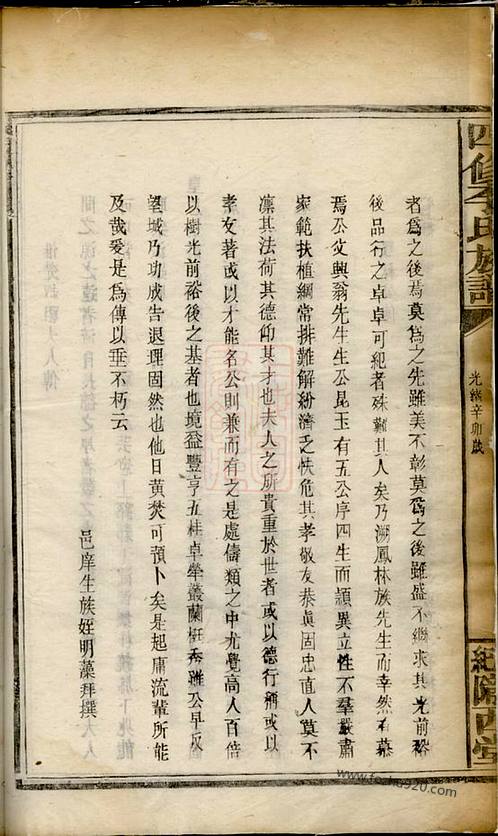 四修李氏族譜
光緒辛卯歲
紹隴西堂
者爲之後焉莫爲之先雖美不彰莫爲之後雖盛不繼求其光前裕
後品行之卓卓可紀者殊難其人矣乃溯鳳林族先生而幸然有慕
焉公父興翁先生生公昆玉有五公序四生而頴異立性不羣嚴肅
家範扶植綱常排難解紛濟乏扶危其孝敬友恭眞固忠直人莫不
凜其法荷其德仰其才也夫人之所貴重於世者或以德行稱或以
孝友著或以才能名公則兼而有之是處儔類之中尤覺高人百倍
以樹光前裕後之基者也境益豐亨五桂卓犖叢蘭挺秀雖公早反
望域乃功成告退理固然也他日黃焚可預卜矣是起庸流輩所能
及哉爰是爲傳以垂不朽云
邑庠生族姪明藻拜撰
www.fozhu920.com